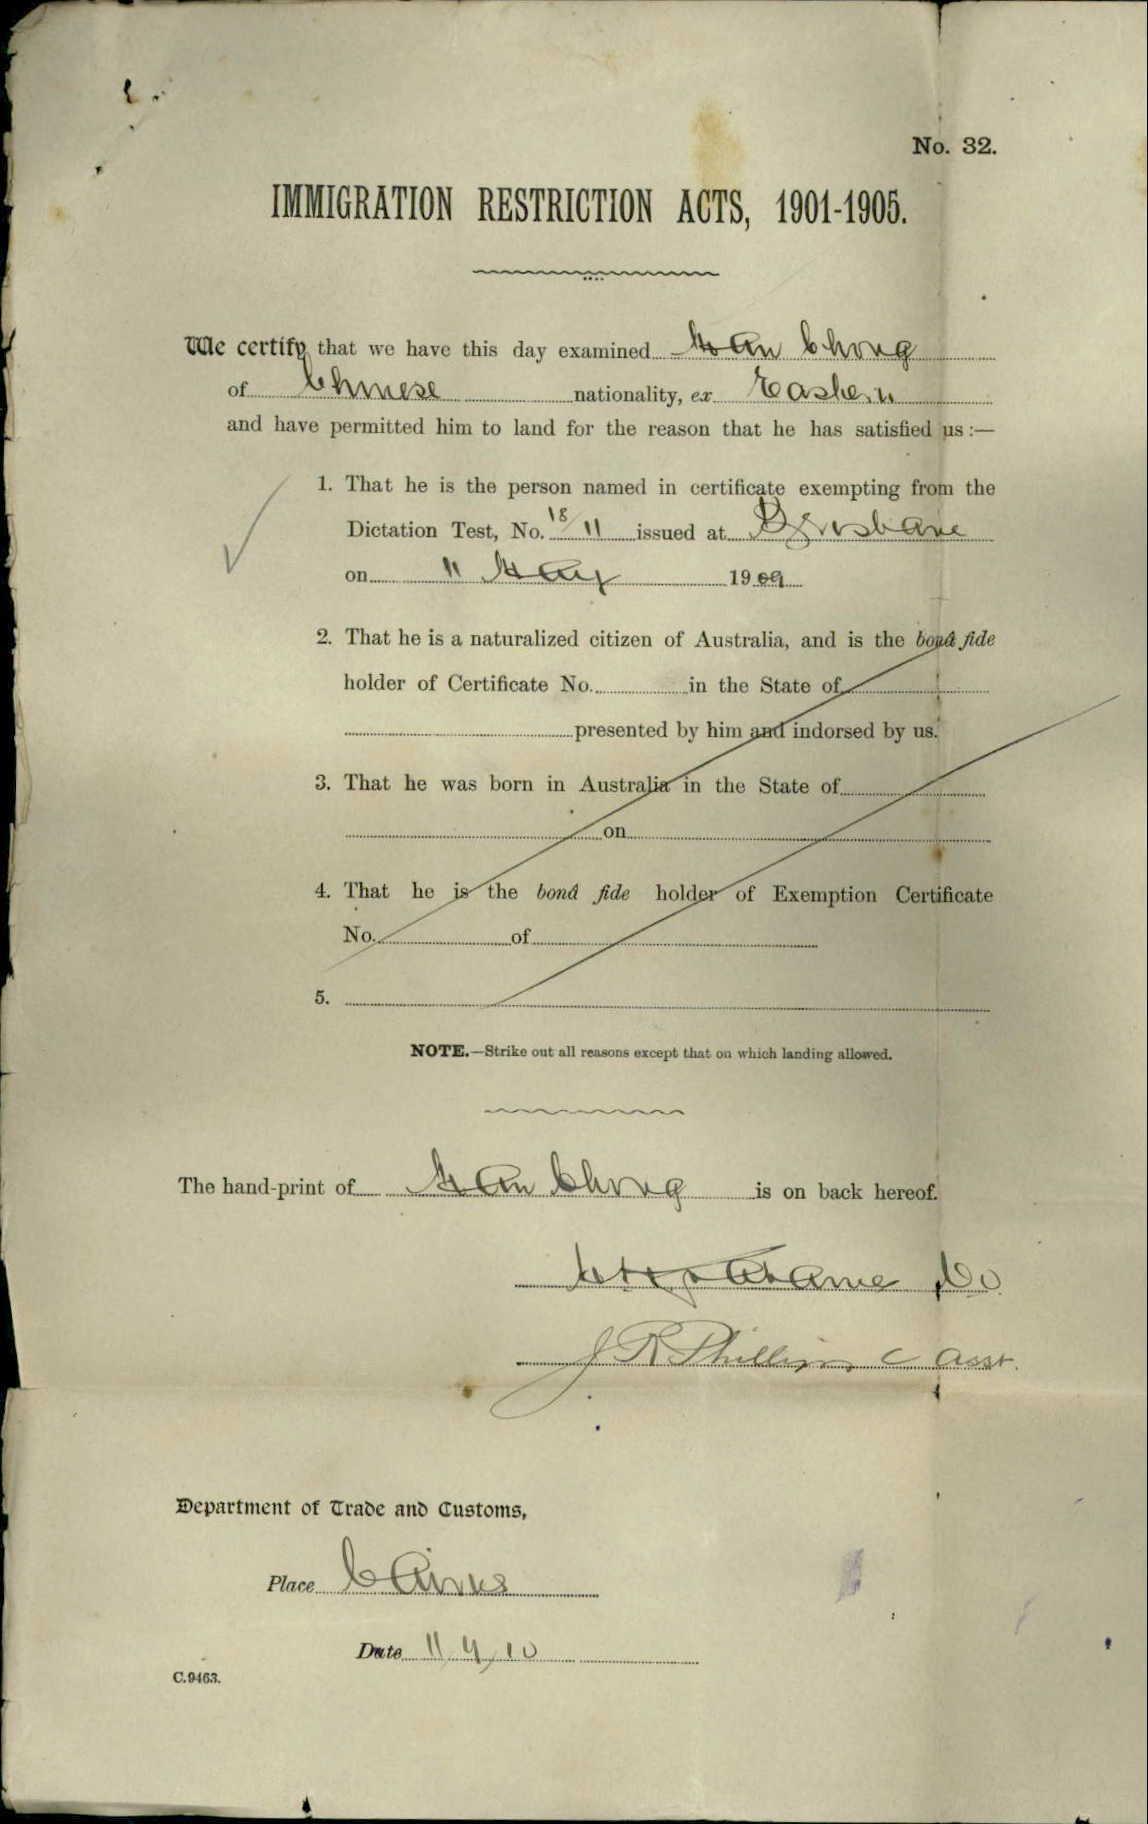 No. 32.
IMMIGRATION RESTRICTION ACTS, 1901-1905.
We certify that we have this day examined Chong
of Chinese nationality, ex Eastern
and have permitted him to land for the reason that he has satisfied us :—
1. That he is the person named in certificate exempting from the
Dictation Test, No. 18/11 issued at Brisbane
on 11 May 1909
2. That he is a naturalized citizen of Australia, and is the bonâ fide
holder of Certificate No. in the State of
presented by him and indorsed by us.
3. That he was born in Australia in the State of
on
4. That he is the bonâ fide holder of Exemption Certificate
No. of
5.
NOTE.—Strike out all reasons except that on which landing allowed.
The hand-print of Chong is on back hereof.
J R Phillips C Asst.
Department of Trade and Customs,
Place Cairns
Date 11/4/10
C.9463.